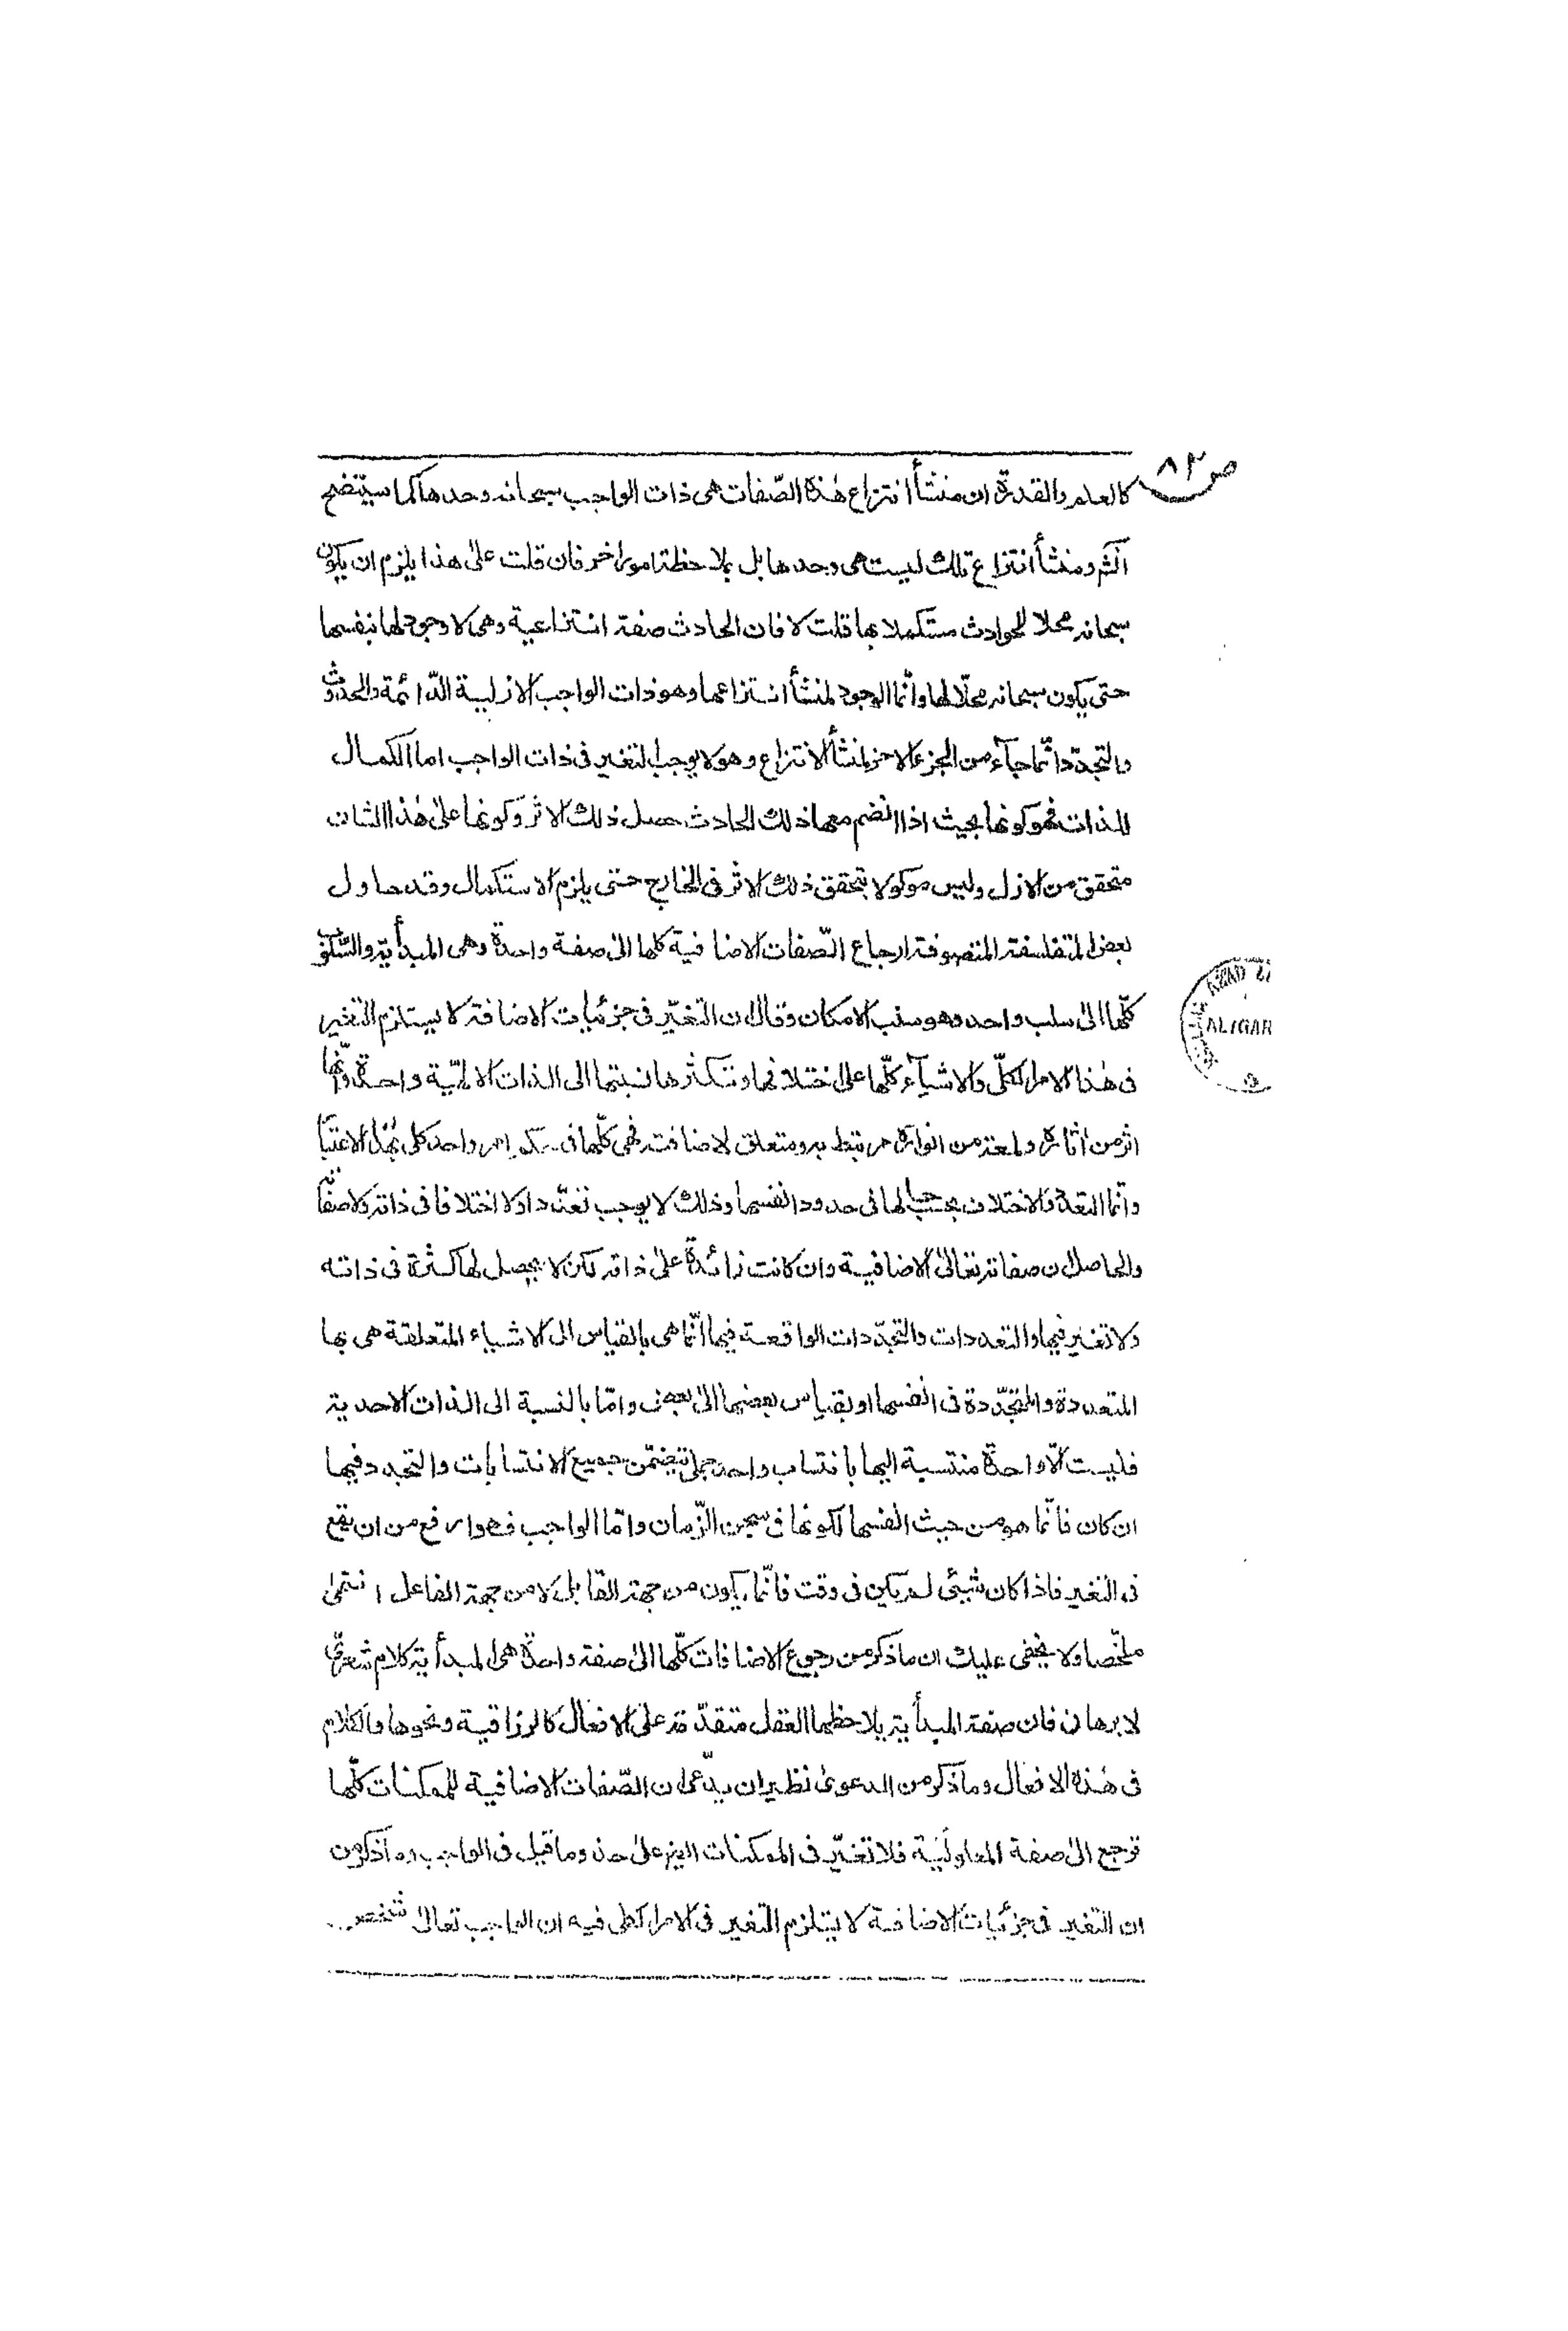 ص ٨٣
كالعلم والقدرة ان منشأ انتزاع هٰذه الصّفات هى ذات الواجب سبحانه وحدها كما سيتضح
انشم ومنشأ انتزاع تلك ليست هى وحدها بل بملاحظة امور اخر فان قلت علىٰ هذا يلزم ان يكون
سبحانه محلا للحوادث مستكملا بها قلت لا فان الحادث صفة انتزاعية وهى لا وجود لها بنفسها
حتى يكون سبحانه محلّا لها وانّما الوجود لمنشأ انتزاعها وهو ذات الواجب الازلية الدّائمة والحدوث
والتجدّد انّما جآء من الجزء الاخر لمنشأ الانتزاع وهو لا يوجب التغير فى ذات الواجب اما الكمال
للذات فهو كونها بحيث اذا انضم معها ذلك الحادث حصل ذلك الاثر وكونها علىٰ هٰذا الشان
متحقق من الازل وليس موكولا بتحقق ذلك الاثر فى الخارج حتى يلزم الاستكمال وقد حاول
بعض المتفلسفة المتصوفة ارجاع الصّفات الاضافية كلها الىٰ صفة واحدة وهى المبدأية والسّلوب
كلّها الىٰ سلب واحد وهو سلب الامكان وقال ان التغيّر فى جزئيات الاضافة لا يستلزم التغير
فى هٰذا الامر الكلّى والاشيآء كلّها على اختلافها وتكثرها نسبتها الى الذات الالهيّة واحدة وانّها
اثر من اٰثاره ولمعة من انواره مرتبط به ومتعلق لاضافته فهى كلّها فى امر واحد كلى بهٰذا الاعتبا
وانّما التعدد والاختلاف بحسب لها فى حدود انفسها وذلك لا يوجب تعدّدا ولا اختلافا فى ذاته ولا صفاته
والحاصل ان صفاته تعالىٰ الاضافية وان كانت زائدة علىٰ ذاته لكن لا يحصل لها كثرة فى ذاته
ولا تغير فيها والتعددات والتجدّدات الواقعة فيها انّما هى بالقياس الى الاشياء المتعلقة هى بها
المتعددة والمتجدّدة فى انفسها او بقياس بعضها الىٰ بعض وامّا بالنسبة الى الذات الاحدية
فليست الّا واحدة منتسبة اليها بانتساب واحد جملى يتضمّن جميع الانتسابات والتجدد فيها
ان كان فانّما هو من حيث انفسها لكونها فى سجن الزّمان وامّا الواجب فهو ارفع من ان يقع
فى التغير فاذا كان شيئى لم يكن فى وقت فانّما يكون من جهة القابل لا من جهة الفاعل انتهىٰ
ملخّصا ولا يخفى عليك ان ما ذكر من رجوع الاضافات كلّها الىٰ صفة واحدة هى المبدأية كلام شعرىّ
لا برهانى فان صفة المبدأية يلاحظها العقل متقدّمة علىٰ الافعال كالرزاقية ونحوها والكلام
فى هٰذه الافعال وما ذكر من الدعوىٰ نظير ان يدّعى ان الصّفات الاضافية للممكنات كلّها
ترجع الىٰ صفة المعلوليّة فلا تغيّر فى الممكنات ايضا علىٰ حذو ما قيل فى الواجب وما ذكر من
ان التغير فى جزئيات الاضافة لا يستلزم التغير فى الامر الكلى فيه ان الواجب تعالىٰ